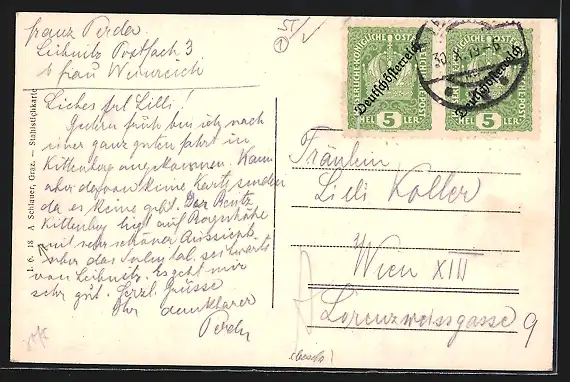 Franz Perda
Leibnitz Postfach 3
b frau Weinreich
Liebes Frl Lilli!
Gestern früh bin ich nach
einer ganz guten fahrt in
Kittenberg angekommen. Kann
aber davon keine Karte senden
da es keine gibt. Der Besitz
Kittenberg liegt auf Bergeshöhe
mit sehr schöner Aussicht
über das Sulmtal, seitwärts
von Leibnitz. Es geht mir
sehr gut. Herzl. Grüsse
Ihr dankbarer
Perda
I. 6. 18 A Schlauer, Graz. — Stahlstichkarte
KAISERLICHE KÖNIGLICHE ÖSTERREICHISCHE POST
5 5
HELLER
Deutschösterreich
KAISERLICHE KÖNIGLICHE ÖSTERREICHISCHE POST
5 5
HELLER
Deutschösterreich
Fräulein
Lilli Koller
Wien XIII
Lorenzweissgasse 9